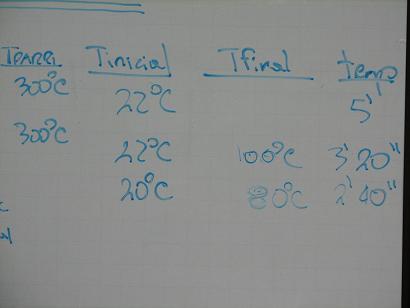 TPARRI Tinicial Tfinal temp
300°C 22°C 5'
300°C 22°C 100°C 3' 20"
20°C 80°C 2' 40"